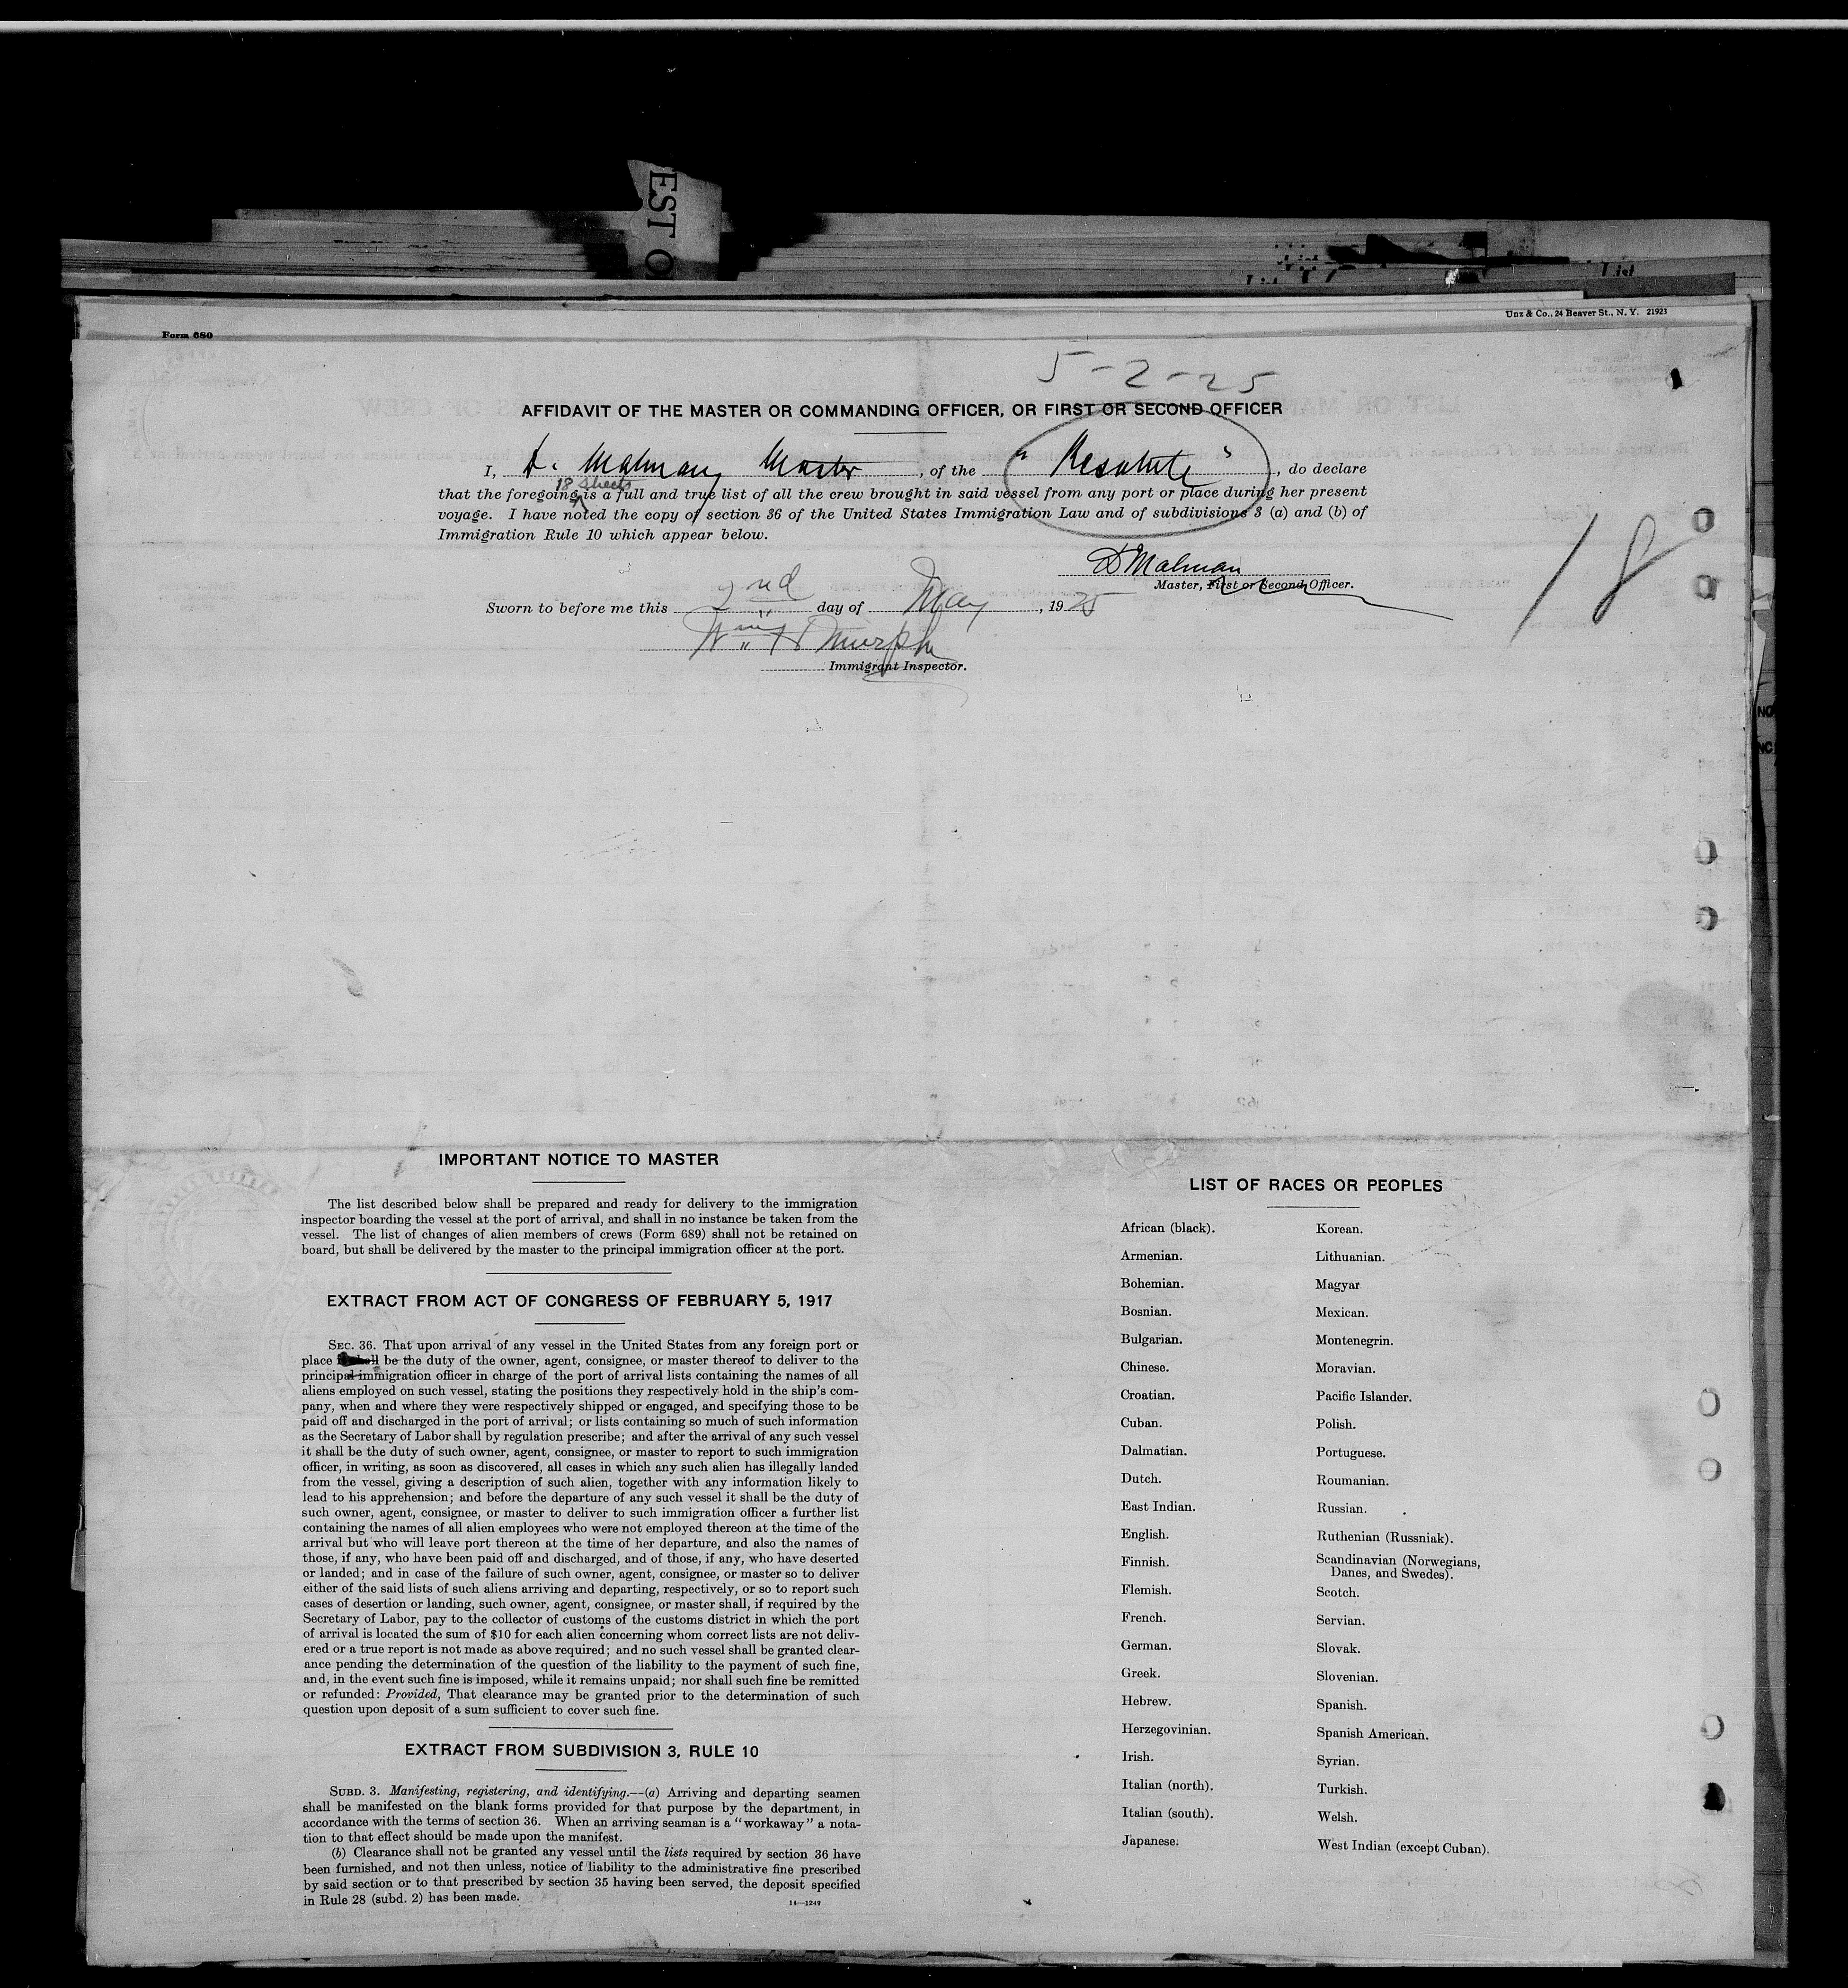 EST O
List
Unz & Co., 24 Beaver St., N. Y. 21923
Form 680
5-2-25
AFFIDAVIT OF THE MASTER OR COMMANDING OFFICER, OR FIRST OR SECOND OFFICER
I, D. Malman, Master, of the "Resolute", do declare
18 sheets
that the foregoing is a full and true list of all the crew brought in said vessel from any port or place during her present
voyage. I have noted the copy of section 36 of the United States Immigration Law and of subdivisions 3 (a) and (b) of
Immigration Rule 10 which appear below.
D Malman
Master, First or Second Officer.
18
Sworn to before me this 2nd day of May, 1925
Wm H Murphy
Immigrant Inspector.
IMPORTANT NOTICE TO MASTER
The list described below shall be prepared and ready for delivery to the immigration
inspector boarding the vessel at the port of arrival, and shall in no instance be taken from the
vessel. The list of changes of alien members of crews (Form 689) shall not be retained on
board, but shall be delivered by the master to the principal immigration officer at the port.
EXTRACT FROM ACT OF CONGRESS OF FEBRUARY 5, 1917
SEC. 36. That upon arrival of any vessel in the United States from any foreign port or
place it shall be the duty of the owner, agent, consignee, or master thereof to deliver to the
principal immigration officer in charge of the port of arrival lists containing the names of all
aliens employed on such vessel, stating the positions they respectively hold in the ship's com-
pany, when and where they were respectively shipped or engaged, and specifying those to be
paid off and discharged in the port of arrival; or lists containing so much of such information
as the Secretary of Labor shall by regulation prescribe; and after the arrival of any such vessel
it shall be the duty of such owner, agent, consignee, or master to report to such immigration
officer, in writing, as soon as discovered, all cases in which any such alien has illegally landed
from the vessel, giving a description of such alien, together with any information likely to
lead to his apprehension; and before the departure of any such vessel it shall be the duty of
such owner, agent, consignee, or master to deliver to such immigration officer a further list
containing the names of all alien employees who were not employed thereon at the time of the
arrival but who will leave port thereon at the time of her departure, and also the names of
those, if any, who have been paid off and discharged, and of those, if any, who have deserted
or landed; and in case of the failure of such owner, agent, consignee, or master so to deliver
either of the said lists of such aliens arriving and departing, respectively, or so to report such
cases of desertion or landing, such owner, agent, consignee, or master shall, if required by the
Secretary of Labor, pay to the collector of customs of the customs district in which the port
of arrival is located the sum of $10 for each alien concerning whom correct lists are not deliv-
ered or a true report is not made as above required; and no such vessel shall be granted clear-
ance pending the determination of the question of the liability to the payment of such fine,
and, in the event such fine is imposed, while it remains unpaid; nor shall such fine be remitted
or refunded: Provided, That clearance may be granted prior to the determination of such
question upon deposit of a sum sufficient to cover such fine.
EXTRACT FROM SUBDIVISION 3, RULE 10
SUBD. 3. Manifesting, registering, and identifying.—(a) Arriving and departing seamen
shall be manifested on the blank forms provided for that purpose by the department, in
accordance with the terms of section 36. When an arriving seaman is a "workaway" a nota-
tion to that effect should be made upon the manifest.
(b) Clearance shall not be granted any vessel until the lists required by section 36 have
been furnished, and not then unless, notice of liability to the administrative fine prescribed
by said section or to that prescribed by section 35 having been served, the deposit specified
in Rule 28 (subd. 2) has been made.
14—1249
LIST OF RACES OR PEOPLES
African (black).
Armenian.
Bohemian.
Bosnian.
Bulgarian.
Chinese.
Croatian.
Cuban.
Dalmatian.
Dutch.
East Indian.
English.
Finnish.
Flemish.
French.
German.
Greek.
Hebrew.
Herzegovinian.
Irish.
Italian (north).
Italian (south).
Japanese.
Korean.
Lithuanian.
Magyar
Mexican.
Montenegrin.
Moravian.
Pacific Islander.
Polish.
Portuguese.
Roumanian.
Russian.
Ruthenian (Russniak).
Scandinavian (Norwegians,
Danes, and Swedes).
Scotch.
Servian.
Slovak.
Slovenian.
Spanish.
Spanish American.
Syrian.
Turkish.
Welsh.
West Indian (except Cuban).